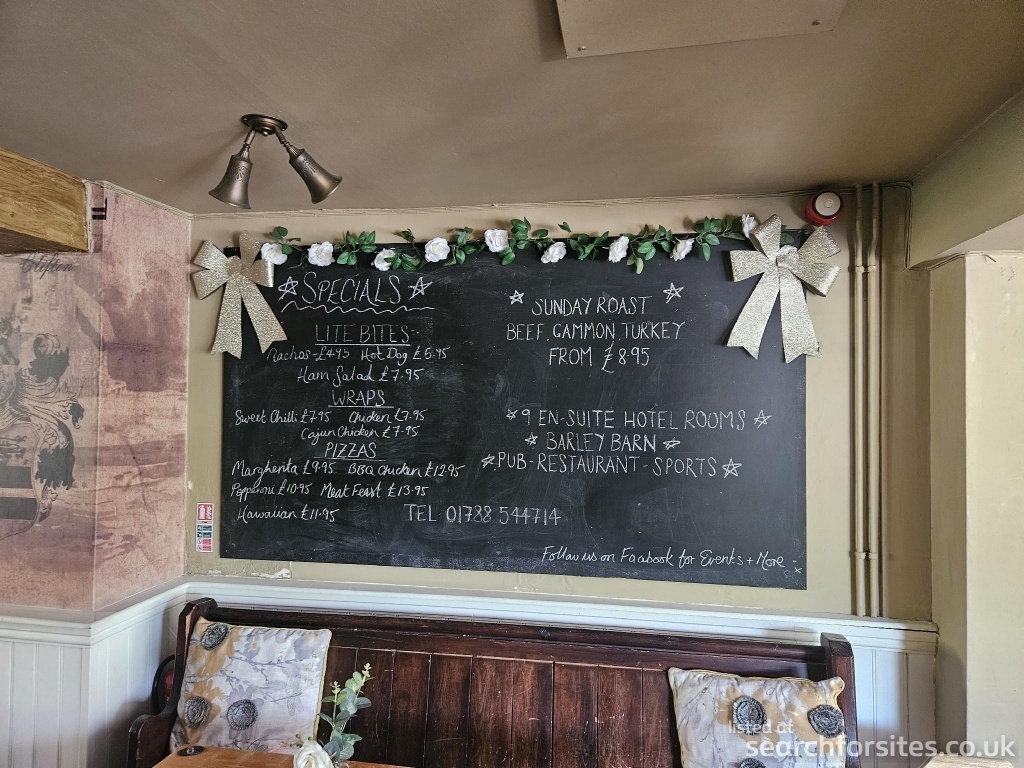 Clifton
☆ SPECIALS ☆
LITE BITES-
Nachos-£4.95 Hot Dog £5.95
Ham Salad £7.95
WRAPS
Sweet Chilli £7.95 Chicken £7.95
Cajun Chicken £7.95
PIZZAS
Margherita £9.95 BBQ Chicken £12.95
Pepperoni £10.95 Meat Feast £13.95
Hawaiian £11.95
☆ SUNDAY ROAST ☆
BEEF, GAMMON, TURKEY
FROM £8.95
☆ 9 EN-SUITE HOTEL ROOMS ☆
☆ BARLEY BARN ☆
☆ PUB-RESTAURANT-SPORTS ☆
TEL 01788 544714
Follow us on Facbook for Events + More -x
listed at
searchforsites.co.uk